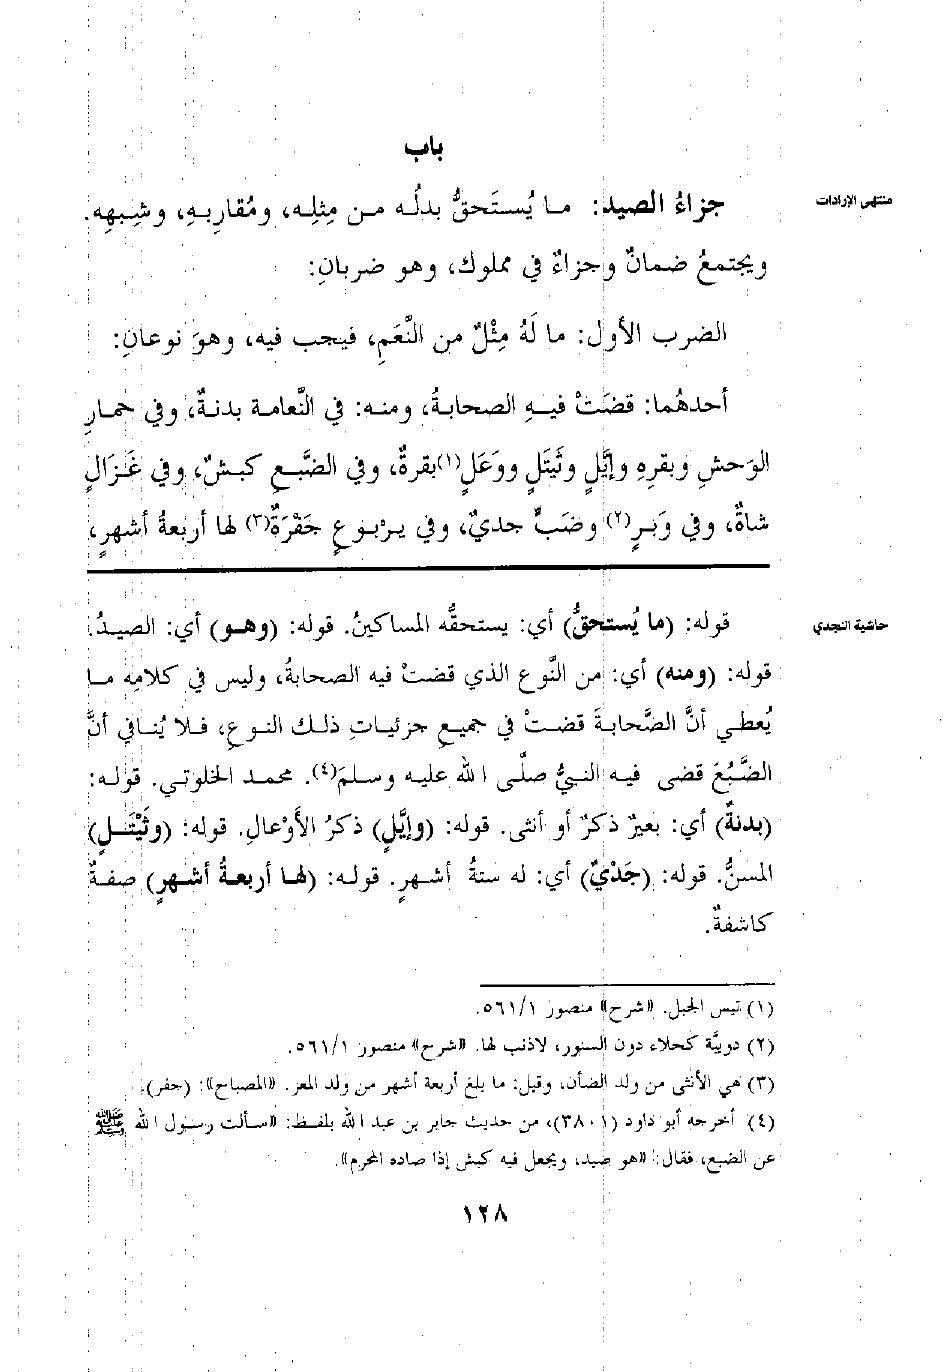 باب
منتهى الإرادات
جزاءُ الصيد: ما يُستَحقُّ بدلُه من مِثلِه، ومُقاربِهِ، وشِبهِه.
ويجتمعُ ضمانٌ وجزاءٌ في مملوك، وهو ضربانِ:
الضرب الأول: ما لَهُ مِثْلٌ من النَّعَمِ، فيجب فيه، وهوَ نوعانِ:
أحدهُما: قضَتْ فيهِ الصحابةُ، ومنه: في النَّعامة بدنةٌ، وفي حمارِ
الوَحشِ وبقرِهِ وإيَّلٍ وثَيتَلٍ ووَعَلٍ(١) بقرةٌ، وفي الضَّبعِ كبشٌ، وفي غَزَالٍ
شاةٌ، وفي وَبَرٍ(٢) وضَبٍّ جديٌ، وفي يربْوعٍ جَفْرَةٌ(٣) لها أربعةُ أشهرٍ،
حاشية النجدي
قوله: (ما يُستحقُّ) أي: يستحقه المساكينُ. قوله: (وهو) أي: الصيدُ.
قوله: (ومنه) أي: من النَّوع الذي قضتْ فيه الصحابةُ، وليس في كلامِه ما
يُعطي أنَّ الصَّحابةَ قضتْ في جميعِ جزئياتِ ذلك النوعِ، فلا يُنافي أنَّ
الضَّبُعَ قضى فيه النبيُّ صلَّى الله عليه وسلم(٤). محمد الخلوتي. قوله:
(بدنةٌ) أي: بعيرٌ ذكرٌ أو أنثى. قوله: (وإيَّلٍ) ذكرُ الأوْعالِ. قوله: (وثَيْتَلٍ)
المسنُّ. قوله: (جَدْيٌ) أي: له ستةُ أشهرٍ. قوله: (لها أربعةُ أشهرٍ) صفةٌ
كاشفةٌ.
(١) تيس الجبل. «شرح» منصور ٥٦١/١.
(٢) دويبَّة كحلاء دون السنور، لاذنب لها. «شرح» منصور ٥٦١/١.
(٣) هي الأنثى من ولد الضأن، وقيل: ما بلغ أربعة أشهر من ولد المعز. «المصباح»: (جفر).
(٤) أخرجه أبو داود (٣٨٠١)، من حديث جابر بن عبد الله بلفظ: «سألت رسول الله ﷺ
عن الضبع، فقال: «هو صيد، ويجعل فيه كبش إذا صاده المحرم».
١٢٨